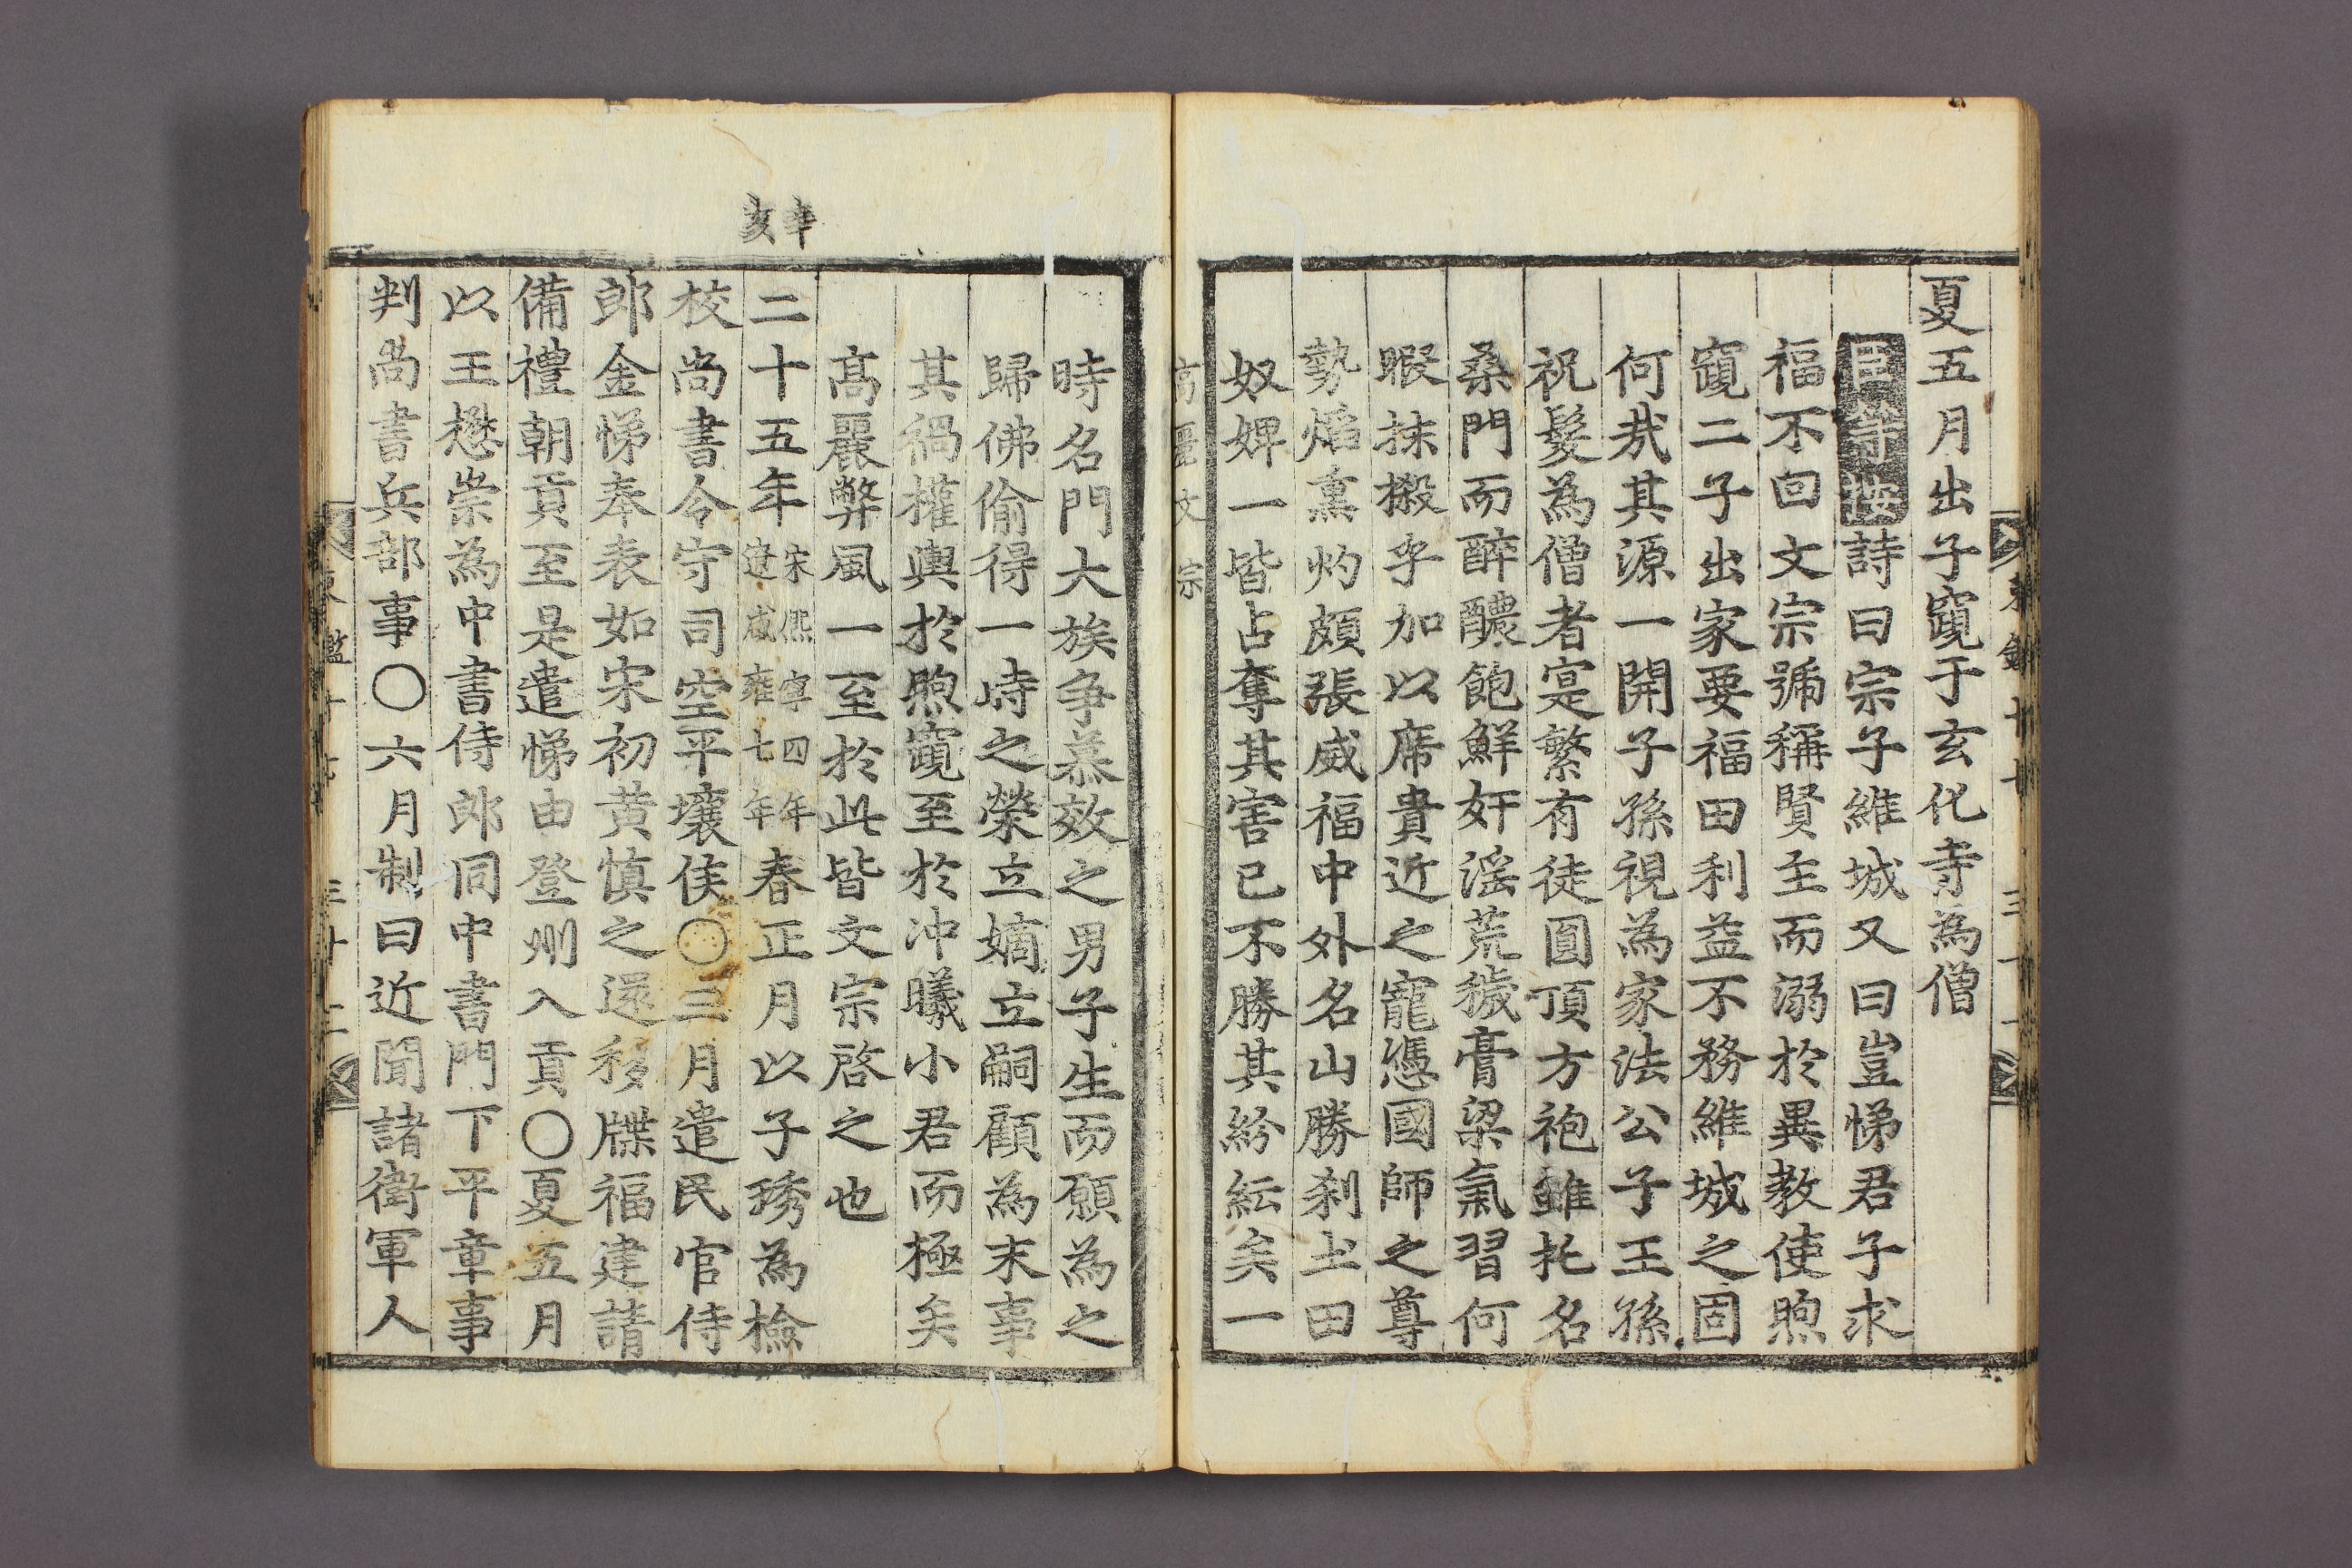 夏五月出子竀于玄化寺為僧
臣等按詩曰宗子維城又曰豈悌君子求
福不回文宗號稱賢主而溺於異敎使煦
竀二子出家要福田利益不務維城之固
何㢤其源一開子孫視為家法公子王孫
祝髮為僧者寔繁有徒圓頂方袍雖托名
桑門而醉醲飽鮮奸淫荒穢膏粱氣習何
暇抹摋乎加以席貴近之寵憑國師之尊
勢焰熏灼頗張威福中外名山勝刹土田
奴婢一皆占奪其害已不勝其紛紜矣一
高麗文宗
時名門大族争慕效之男子生而願為之
歸佛偷得一時之榮立嫡立嗣顧為末事
其禍權輿於煦竀至於冲曦小君而極矣
髙麗弊風一至於此皆文宗啓之也
辛亥
二十五年宋熈寧四年遼咸雍七年春正月以子琇為檢
校尚書令守司空平壤侯○三月遣民官侍
郎金悌奉表如宋初黄慎之還移牒福建請
備禮朝貢至是遣悌由登州入貢○夏五月
以王懋崇為中書侍郎同中書門下平章事
判尚書兵部事○六月制曰近聞諸衛軍人